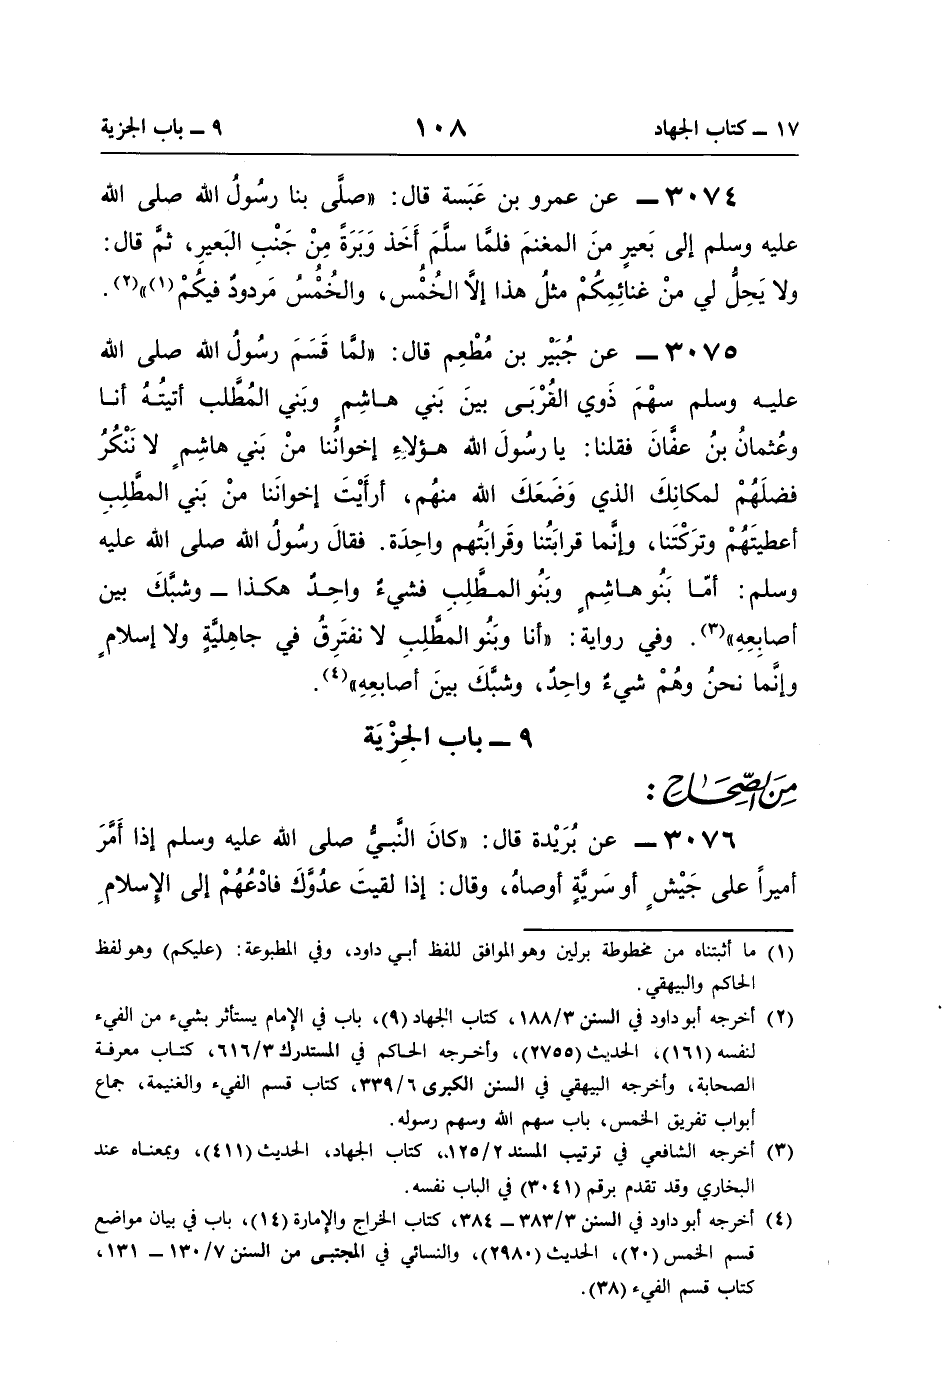 ١٧ ــ كتاب الجهاد ١٠٨ ٩ ــ باب الجزية
٣٠٧٤ ــ عن عمرو بن عَبَسة قال: «صلَّى بنا رسُولُ الله صلى الله
عليه وسلم إلى بَعيرٍ منَ المغنمَ فلمَّا سلَّمَ أَخَذ وَبَرَةً مِنْ جَنْبِ البَعيرِ، ثمَّ قال:
ولا يَحِلُّ لي منْ غنائِمِكُمْ مثلُ هذا إلاَّ الخُمُس، والخُمُسُ مَردودٌ فيكُمْ(١)»(٢).
٣٠٧٥ ــ عن جُبَيْر بن مُطْعِم قال: «لمَّا قَسَمَ رسُولُ الله صلى الله
عليه وسلم سهْمَ ذَوي القُرْبَى بينَ بَني هاشِمٍ وبَني المُطَّلب أتيتُهُ أنا
وعُثمانُ بنُ عفَّانَ فقلنا: يا رسُولَ الله هؤلاءِ إخوانُنا منْ بَني هاشِمٍ لا نَنْكُرُ
فضلَهُمْ لمكانِكَ الذي وَضَعَكَ الله منهُم، أرأَيْتَ إخوانَنا منْ بَني المطَّلِبِ
أعطيتَهُمْ وتركْتَنا، وإنَّما قرابَتُنا وقَرابَتُهم واحِدَة. فقالَ رسُولُ الله صلى الله عليه
وسلم: أمّا بَنُو هاشِمٍ وبَنُو المطَّلِبِ فشيءٌ واحِدٌ هكذا ــ وشبَّكَ بين
أصابِعِهِ»(٣). وفي رواية: «أنا وبَنُو المطَّلِبِ لا نفتَرِقُ في جاهليَّةٍ ولا إسلامٍ
وإنَّما نحنُ وهُمْ شيءٌ واحِدٌ، وشبَّكَ بينَ أصابعِهِ»(٤).
٩ ــ باب الجِزْيَة
مِنَ الصِّحَاح :
٣٠٧٦ ــ عن بُرَيْدة قال: «كانَ النَّبيُّ صلى الله عليه وسلم إذا أَمَّرَ
أميراً على جَيْشٍ أو سَريَّةٍ أوصاهُ، وقال: إذا لقيتَ عدُوَّكَ فادْعُهُمْ إلى الإسلامِ
(١) ما أثبتناه من مخطوطة برلين وهو الموافق للفظ أبي داود، وفي المطبوعة: (عليكم) وهو لفظ
الحاكم والبيهقي.
(٢) أخرجه أبو داود في السنن ١٨٨/٣، كتاب الجهاد (٩)، باب في الإمام يستأثر بشيء من الفيء
لنفسه (١٦١)، الحديث (٢٧٥٥)، وأخرجه الحاكم في المستدرك ٦١٦/٣، كتاب معرفة
الصحابة، وأخرجه البيهقي في السنن الكبرى ٣٣٩/٦، كتاب قسم الفيء والغنيمة، جماع
أبواب تفريق الخمس، باب سهم الله وسهم رسوله.
(٣) أخرجه الشافعي في ترتيب المسند ١٢٥/٢، كتاب الجهاد، الحديث (٤١١)، وبمعناه عند
البخاري وقد تقدم برقم (٣٠٤١) في الباب نفسه.
(٤) أخرجه أبو داود في السنن ٣٨٣/٣ ــ ٣٨٤، كتاب الخراج والإمارة (١٤)، باب في بيان مواضع
قسم الخمس (٢٠)، الحديث (٢٩٨٠)، والنسائي في المجتبى من السنن ١٣٠/٧ ــ ١٣١،
كتاب قسم الفيء (٣٨).